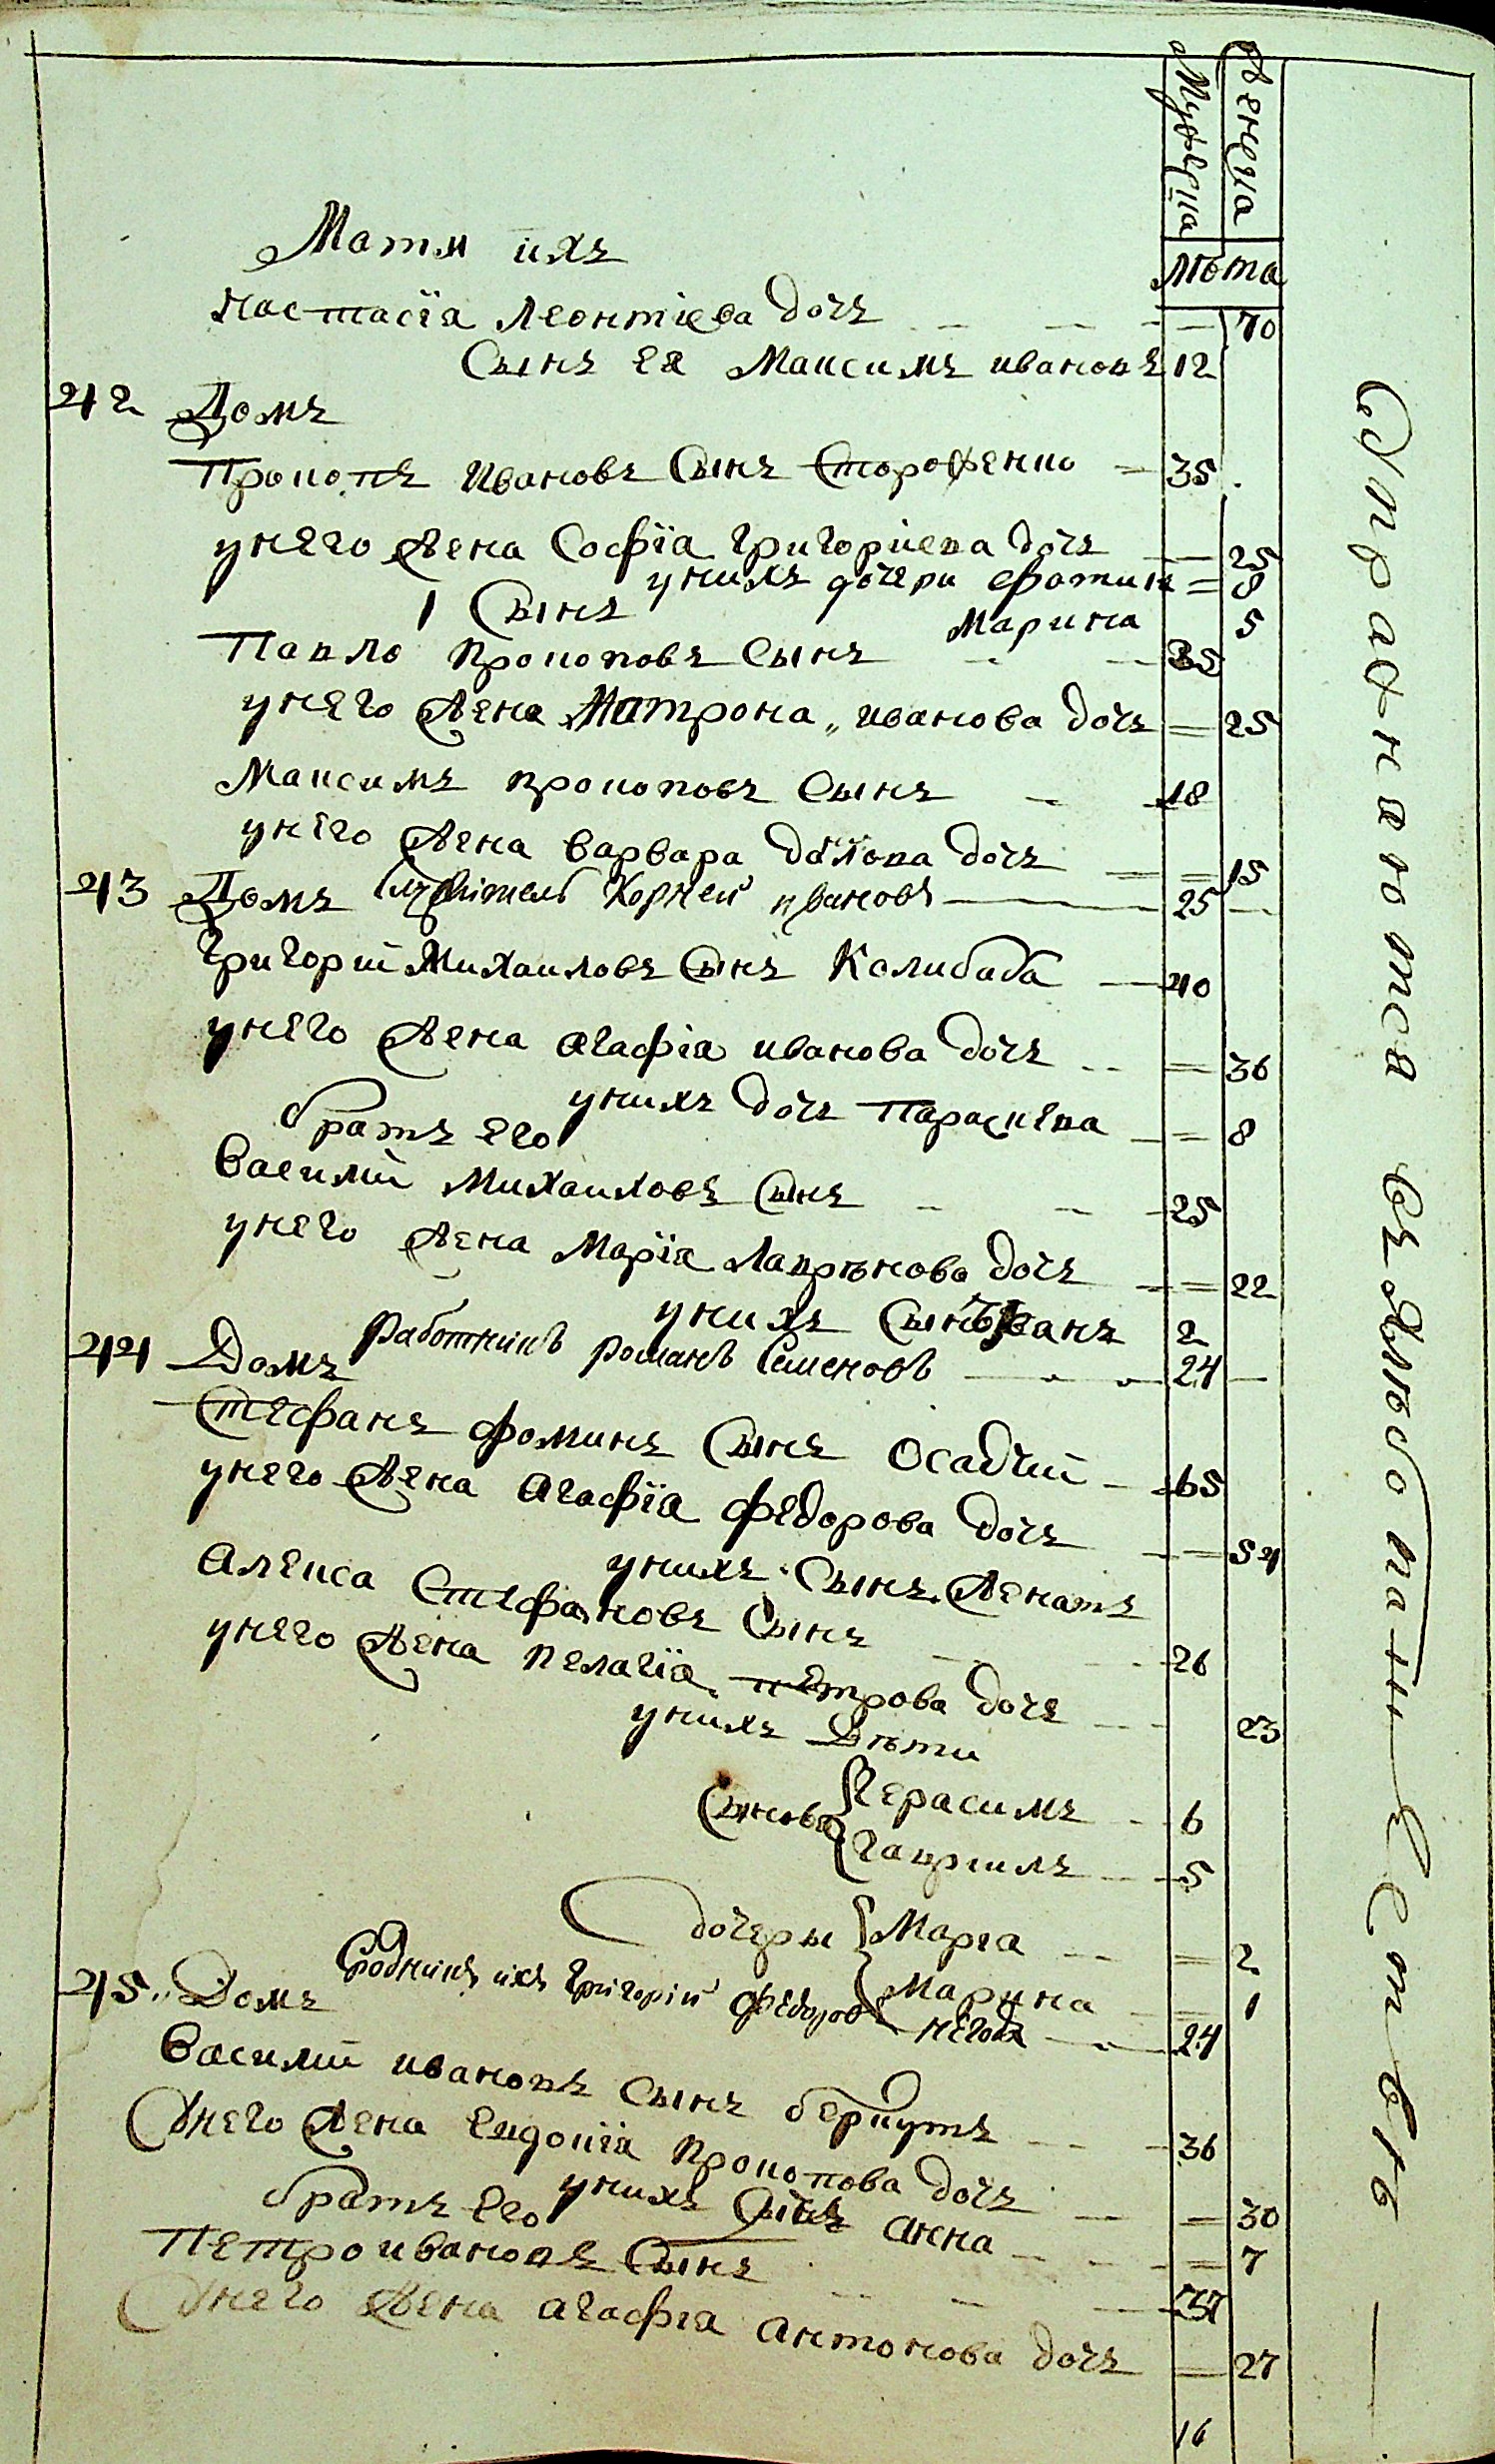 Мужеска
Женска
лѣта
Мати ихъ
Настасїа Леонтїева дочъ — 70
Сынъ ея Максимъ ивановъ 12
42 Домъ
Прокопъ Ивановъ Сынъ Стороженко — 35
унего жена Софїа григорїева дочъ — 25
унихъ дочери фотин = 8
1 Сынъ
Марина 5
Павло Прокоповъ Сынъ — 35
унего жена Матрона иванова дочъ = 25
Максимъ прокоповъ Сынъ — 18
унего жена варвара дочъ = 15
43 Домъ Служїтель Корней ивановъ — 25 —
григорий Михаиловъ Сынъ Колибаба — 40
унего жена агафїа иванова дочъ = 36
унихъ дочъ Параскева = 8
братъ его
василий Михаиловъ Сынъ — 25
унего жена Марїа Лаврѣнова дочъ = 22
унихъ Сынъ Иванъ 2
44 Домъ работникъ романъ Семеновъ — 24 —
Стефанъ фоминъ Сынъ Осадчий — 65
унего жена агафїа федорова дочъ = 54
унихъ Сынъ женатъ
алекса Стефановъ Сынъ — 26
унего жена пелагїа петрова дочъ — 23
унихъ Дѣти
Сынова Герасимъ — 6
гавриилъ — 5
дочеры Марїа = 2
Марина = 1
Сродникъ ихъ григорїй федоровъ — 24
45 Домъ
василий ивановъ Сынъ беркутъ — 36
Унего жена Евдокїа прокопова дочъ = 30
унихъ анна = 7
братъ его
Петро ивановъ Сынъ — 37
Унего жена агафїа антонова дочъ = 27
16